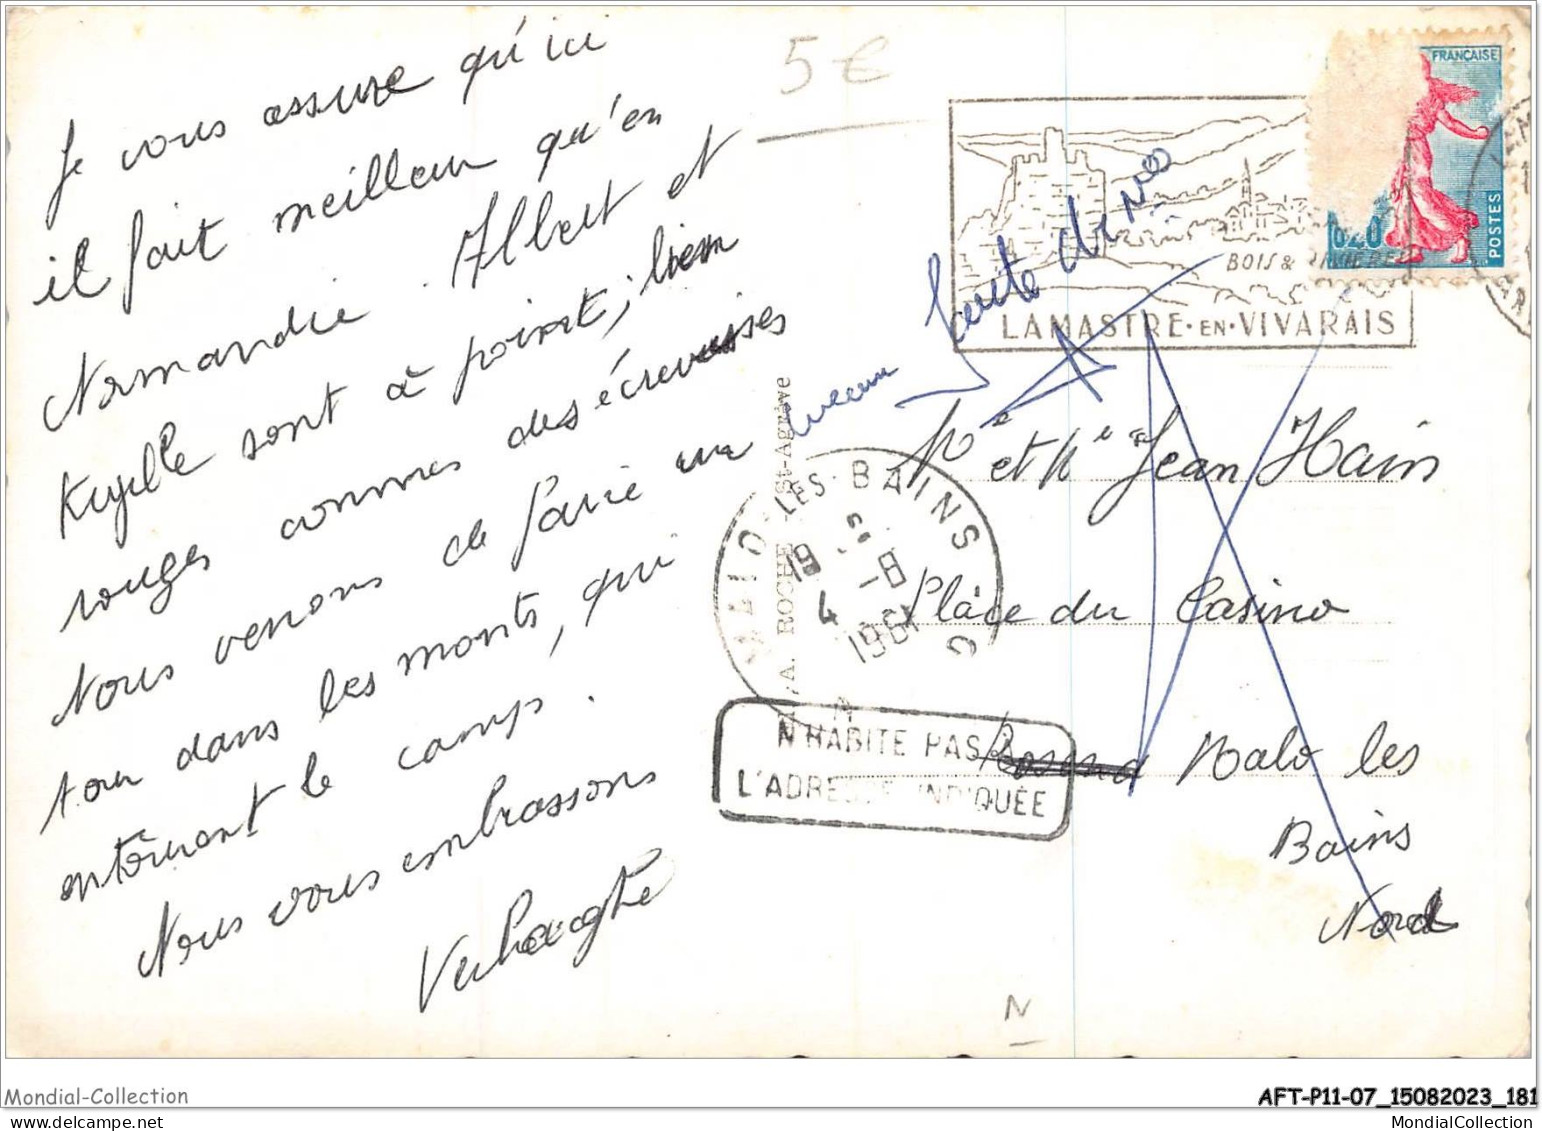 Je vous assure qu'ici
il fait meilleur qu'en
Normandie. Albert et
sont à point, bien
rouges commes des écrevisses
Nous venons de faire un
tour dans les monts, qui
entourent le camp.
Nous vous embrassons
Verhaeghe
5€
FRANÇAISE
0,20
POSTES
BOIS & RIVIERES
LAMASTRE-EN-VIVARAIS
A. ROCHE St-Agrève
MALO-LES-BAINS
19 5-8
4 1961
N'HABITE PAS A
L'ADRESSE INDIQUÉE
Mr et Me Jean Hain
Place du Casino
Malo les
Bains
Nord
N
Mondial-Collection
AFT-P11-07_15082023_181
MondialCollection